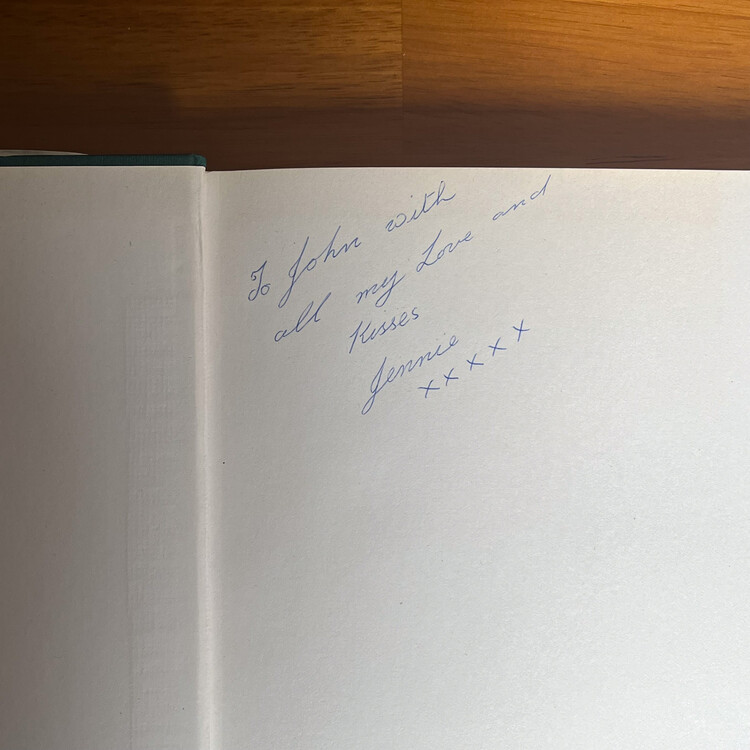 To John with
all my Love and
Kisses
Jennie
xxxxx